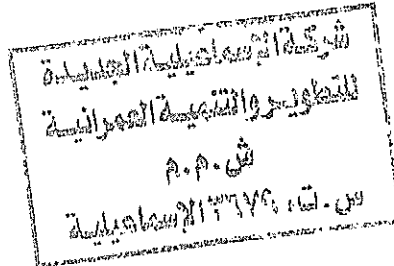 شركة الإسماعيلية الجديدة
للتطوير والتنمية العمرانية
ش.م.م
س.ت. ٣٦٧٢٠ الإسماعيلية